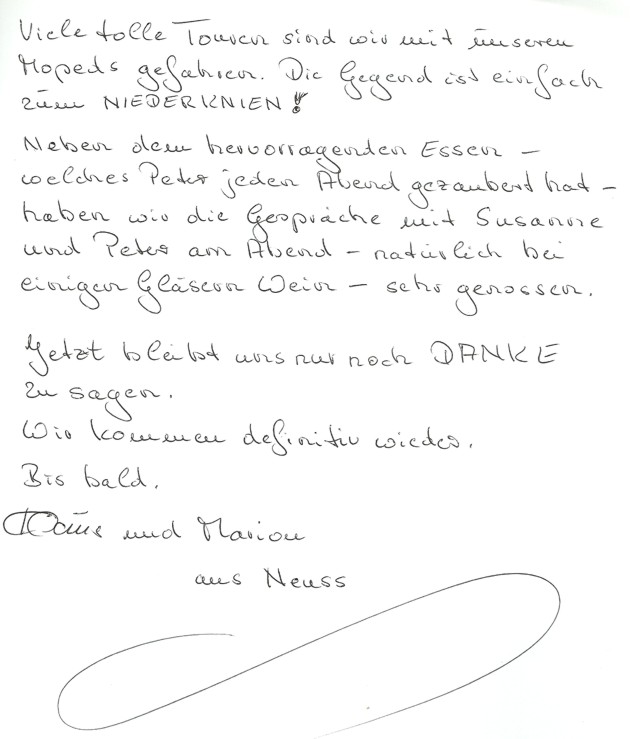 Viele tolle Touren sind wir mit unseren
Mopeds gefahren. Die Gegend ist einfach
zum NIEDERKNIEN!
Neben dem hervorragenden Essen –
welches Peter jeden Abend gezaubert hat –
haben wir die Gespräche mit Susanne
und Peter am Abend – natürlich bei
einigen Gläsern Wein – sehr genossen.
Jetzt bleibt uns nur noch DANKE
zu sagen.
Wir kommen definitiv wieder.
Bis bald.
und Marion
aus Neuss